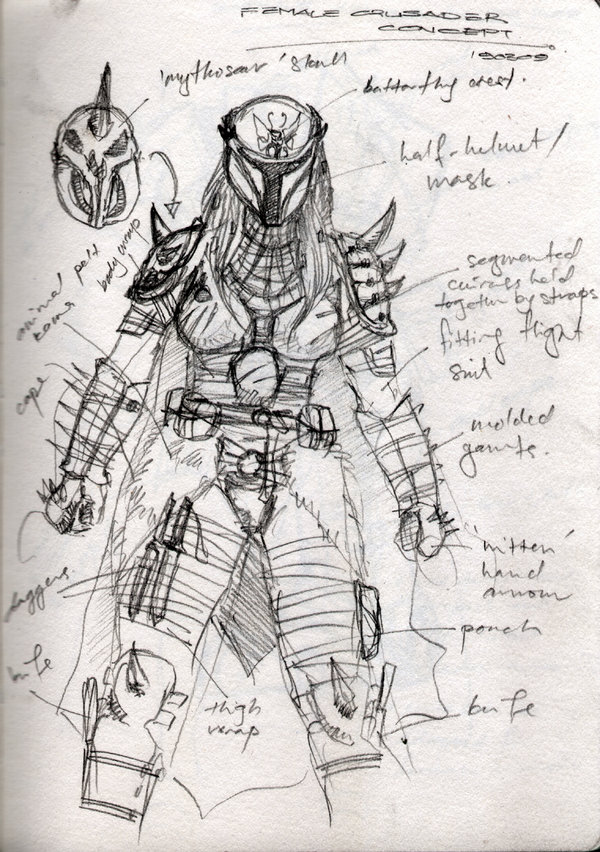 FEMALE CRUSADER
CONCEPT.
190309
'mythosaur' skull
butterfly crest.
half-helmet/
mask.
body wrap
animal pelt
segmented
cuirass held
together by straps
fitting flight
suit
cape
molded
gaunts.
'mitten'
hand
armour
daggers.
pouch
knife
thigh
wrap
knife